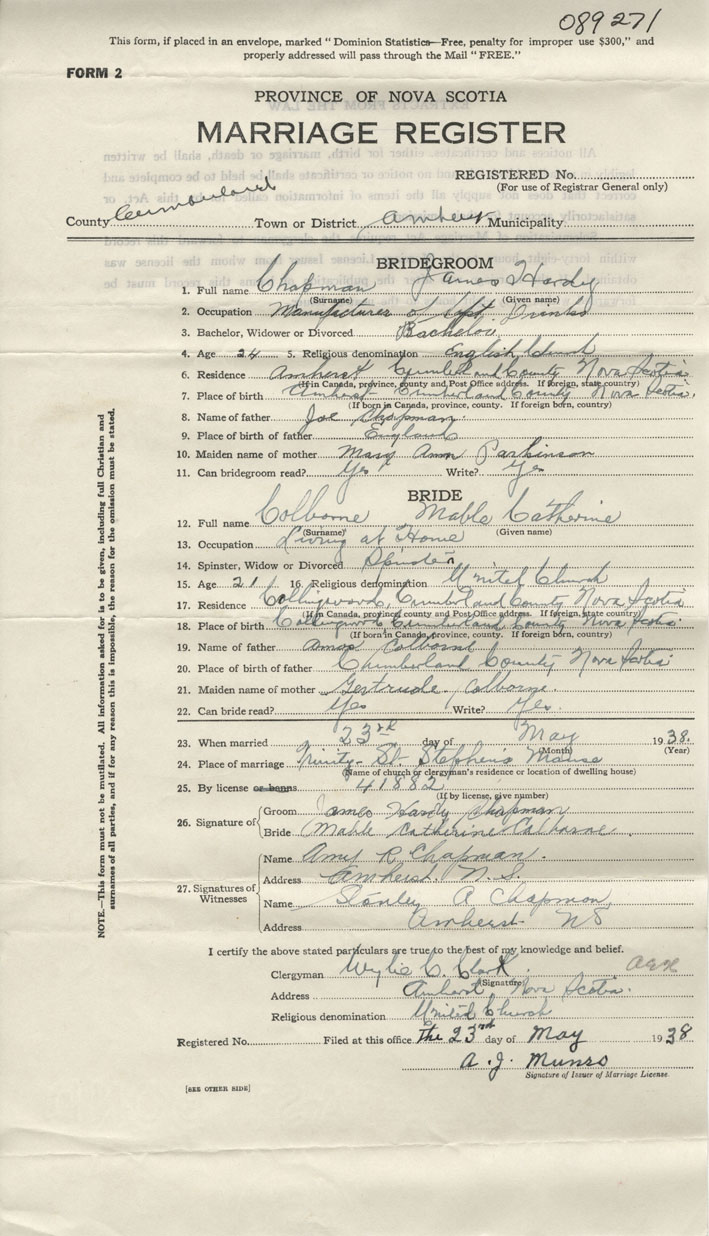 089271
This form, if placed in an envelope, marked "Dominion Statistics—Free, penalty for improper use $300," and
properly addressed will pass through the Mail "FREE."
FORM 2
PROVINCE OF NOVA SCOTIA
MARRIAGE REGISTER
REGISTERED No.
(For use of Registrar General only)
County Cumberland Town or District Amherst Municipality
BRIDEGROOM
1. Full name Chapman James Hardy
(Surname) (Given name)
2. Occupation Manufacturer of Soft Drinks
3. Bachelor, Widower or Divorced Bachelor
4. Age 24 5. Religious denomination English Church
6. Residence Amherst Cumberland County Nova Scotia
(If in Canada, province, county and Post Office address. If foreign, state country)
7. Place of birth Amherst Cumberland County Nova Scotia.
(If born in Canada, province, county. If foreign born, country)
8. Name of father Joe Chapman
9. Place of birth of father England
10. Maiden name of mother Mary Ann Parkinson
11. Can bridegroom read? Yes Write? Yes
BRIDE
12. Full name Colborne Mable Catherine
(Surname) (Given name)
13. Occupation Living at Home
14. Spinster, Widow or Divorced Spinster
15. Age 21 16. Religious denomination United Church
17. Residence Collingwood, Cumberland County Nova Scotia
(If in Canada, province, county and Post Office address. If foreign, state country)
18. Place of birth Collingwood Cumberland County Nova Scotia.
(If born in Canada, province, county. If foreign born, country)
19. Name of father Amos Colborne
20. Place of birth of father Cumberland County Nova Scotia
21. Maiden name of mother Gertrude Colborne.
22. Can bride read? Yes Write? Yes.
23. When married 23rd day of May 1938.
(Month) (Year)
24. Place of marriage Trinity-St Stephen's Manse
(Name of church or clergyman's residence or location of dwelling house)
25. By license or banns 41882
(If by license, give number)
26. Signature of
Groom James Hardy Chapman
Bride Mable Catherine Colborne
27. Signatures of Witnesses
Name Amy R Chapman.
Address Amherst. N.S.
Name Stanley A Chapman
Address Amherst NS
I certify the above stated particulars are true to the best of my knowledge and belief.
Clergyman Wylie C. Clark
(Signature)
Address Amherst, Nova Scotia.
Religious denomination United Church
Registered No. Filed at this office the 23rd day of May 1938
A. J. Munro
Signature of Issuer of Marriage License.
[SEE OTHER SIDE]
NOTE.—This form must not be mutilated. All information asked for is to be given, including full Christian and
surnames of all parties, and if for any reason this is impossible, the reason for the omission must be stated.